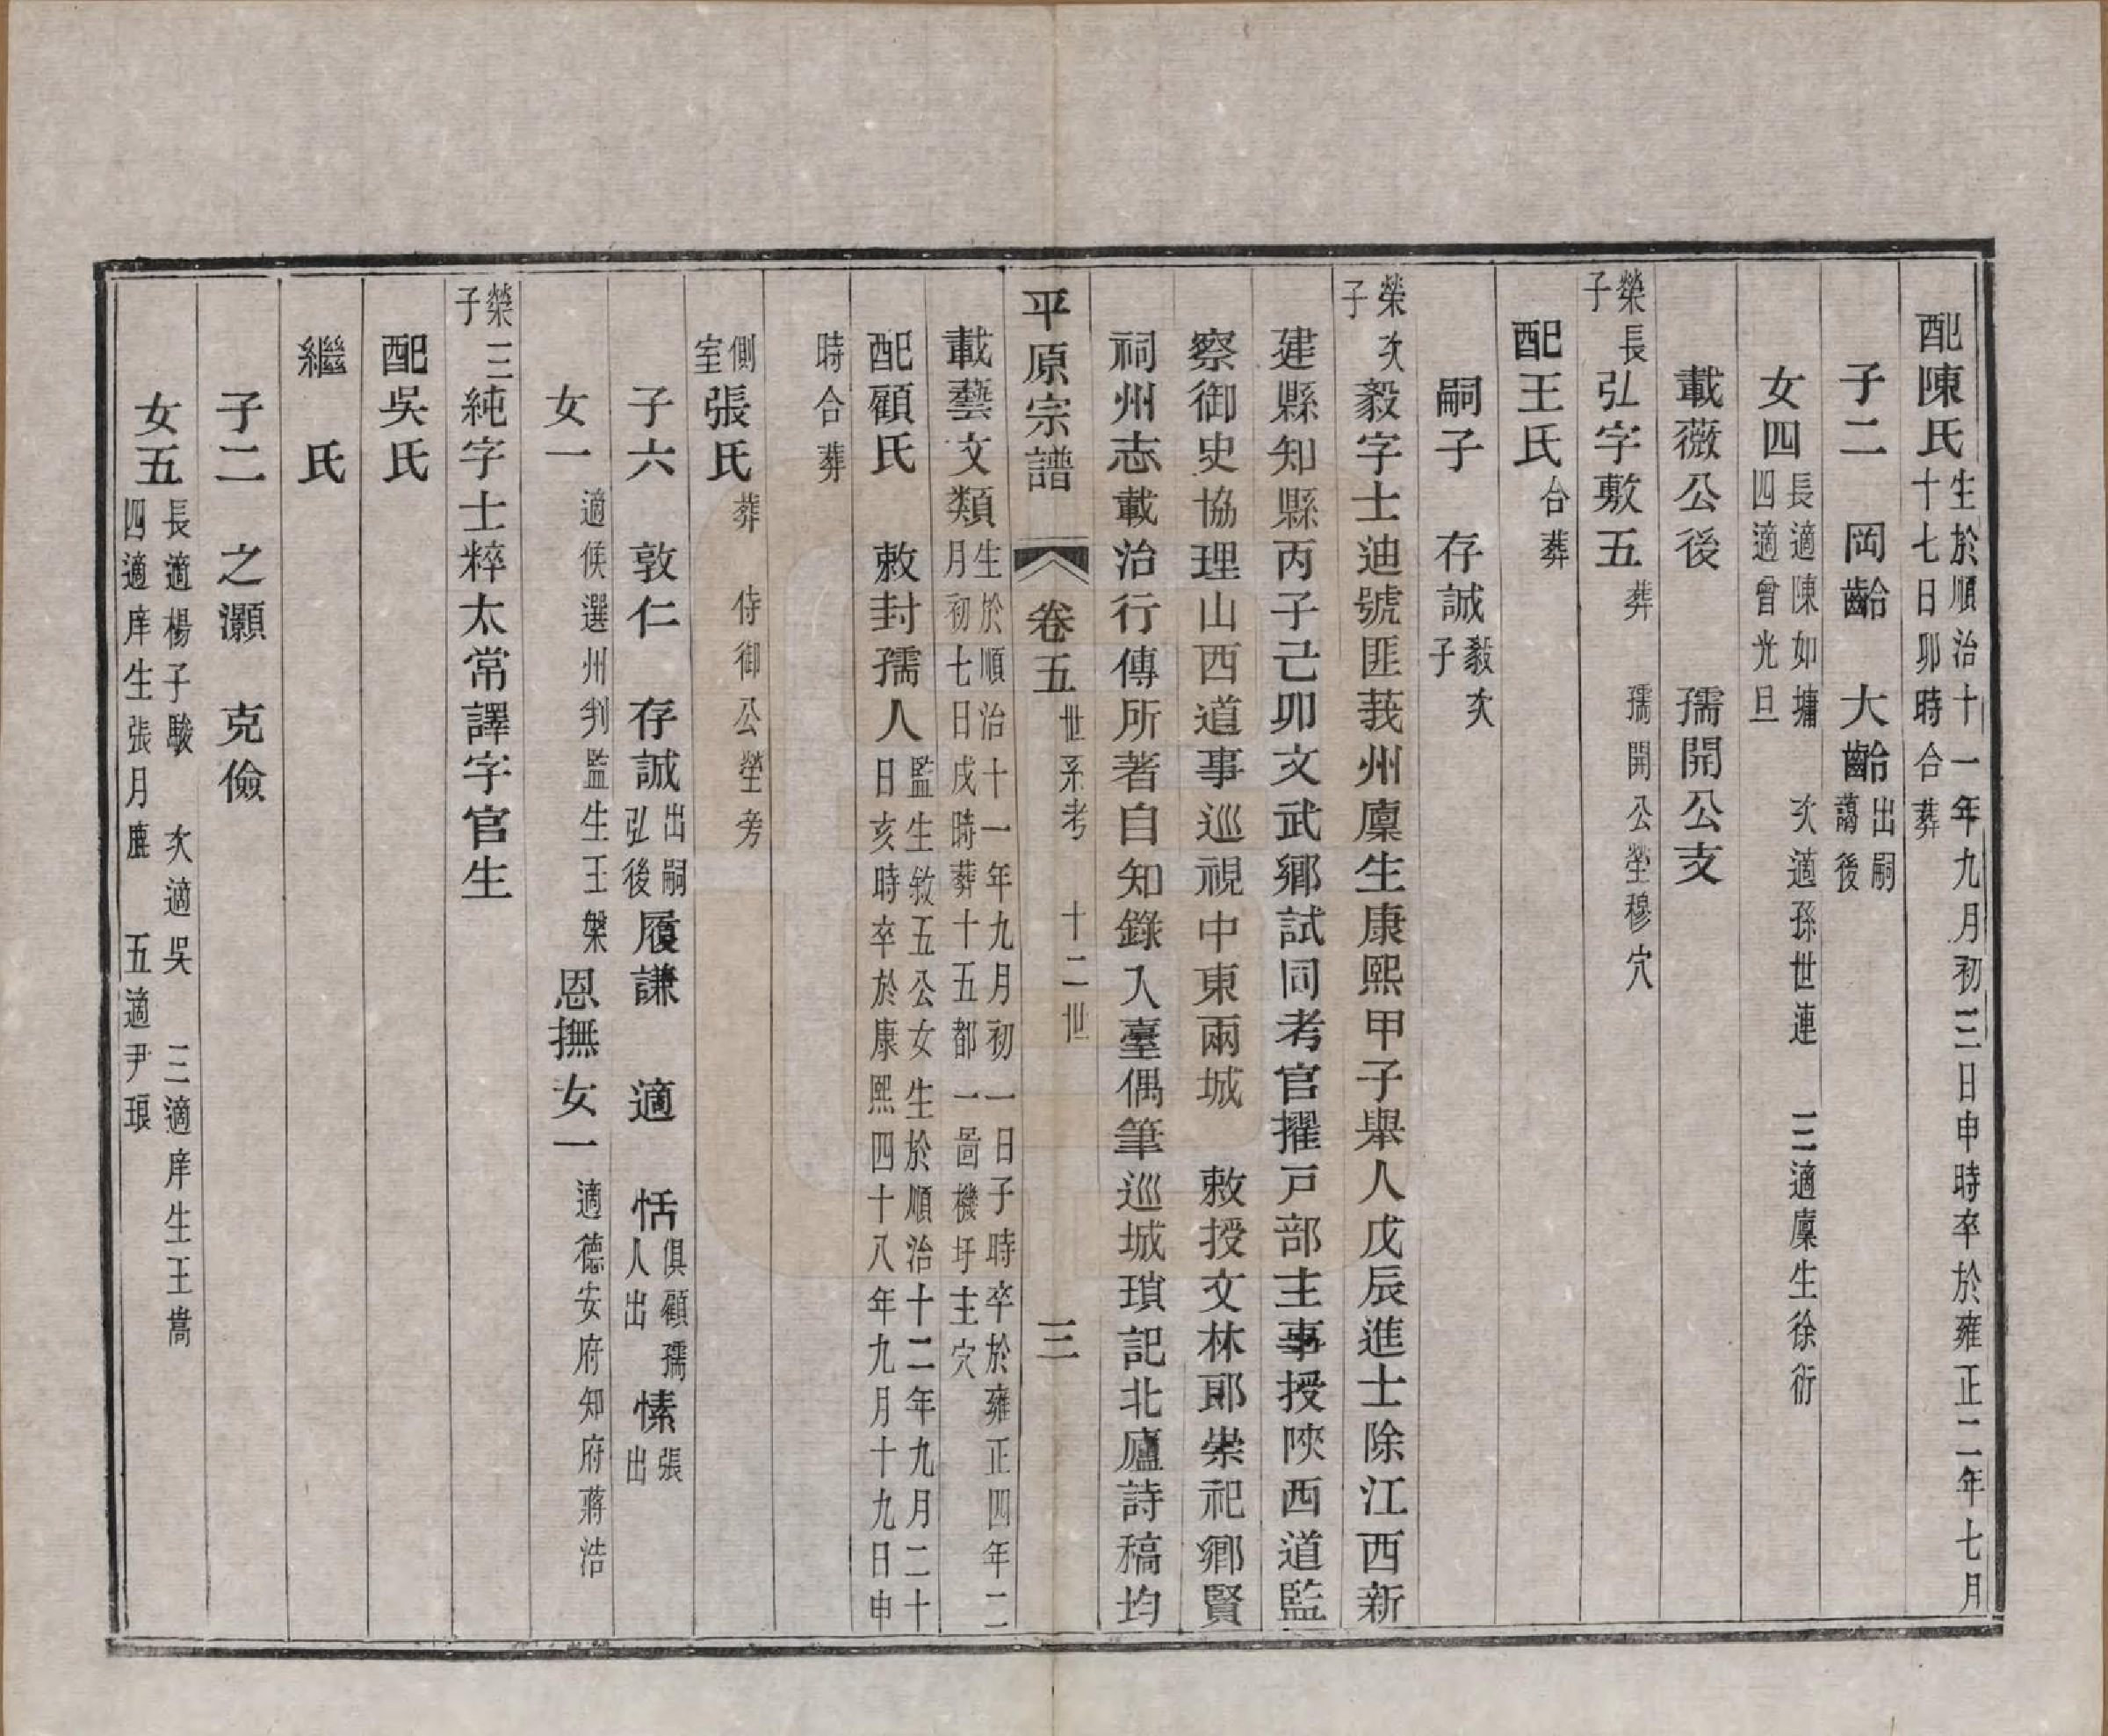 配陳氏生於順治十一年九月初三日申時卒於雍正二年七月
十七日卯時合葬
子二　岡齡　大齡出嗣
藹後
女四長適陳如墉　次適孫世連　三適廩生徐衍
四適曾光旦
載薇公後　孺開公支
榮長
子
弘字敷五葬　孺開公塋穆穴
配王氏合葬
嗣子　存誠毅次
子
榮次
子
毅字士迪號匪莪州廩生康熙甲子舉人戊辰進士除江西新
建縣知縣丙子己卯文武鄉試同考官擢戶部主事授陝西道監
察御史協理山西道事巡視中東兩城　敕授文林郎崇祀鄉賢
祠州志載治行傳所著自知錄入臺偶筆巡城瑣記北廬詩稿均
平原宗譜　卷五　世系考　十二世　三
載藝文類生於順治十一年九月初一日子時卒於雍正四年二
月初七日戌時葬十五都一啚機圩主穴
配顧氏　敕封孺人監生敘五公女生於順治十二年九月二十
日亥時卒於康熙四十八年九月十九日申
時合葬
側
室
張氏葬　侍御公塋旁
子六　敦仁　存誠出嗣
弘後
履謙　適　恬俱顧孺
人出
愫張
出
女一適候選州判監生王槃　恩撫女一適德安府知府蔣浩
榮三
子
純字士粹太常譯字官生
配吳氏
繼　氏
子二　之灝　克儉
女五長適楊子駿　次適吳　三適庠生王嵩
四適庠生張月鹿　五適尹珢